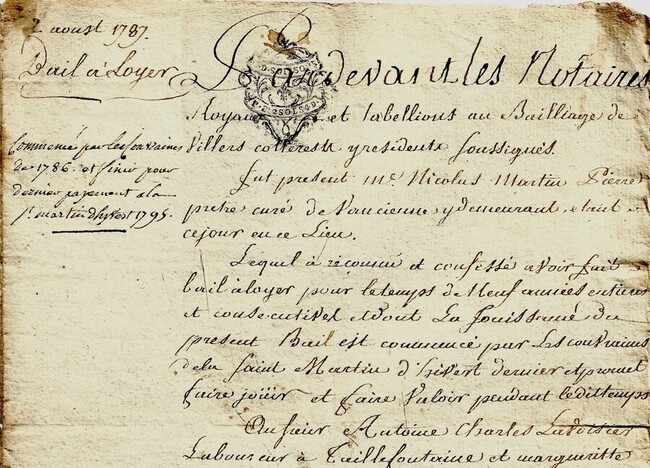 2 aoust 1787.
Bail à Loyer
Commencé par les Couvraines
de 1786. et finir pour
dernier payement a la
St martin d'hyvert 1795.
Par devant les Notaires
Royaux et tabellions au Bailliage de
Villers cotterests y residents soussignés.
fut present me. Nicolas Martin Pierret
pretre curé de Vaucienne y demeurant, etant
cejour en ce Lieu.
Lequel à reconnu et confessé avoir fait
bail àloyer pour letemps de Neuf années entieres
et consecutives et dont La Jouissance du
present Bail est commencé par Les couvraines
dela Saint Martin d'hivert dernier et promet
faire joüir et faire Valoir pendant ledit temps
Au sieur Antoine Charles Lavoisier
Laboureur à Taillefontaine et margueritte